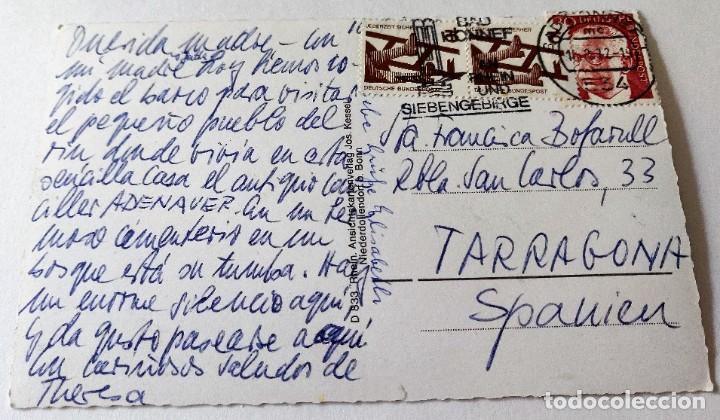 Querida madre - con
mi madre Hoy hemos co-
gido el barco para visitar
el pequeño pueblo del
rin donde vivia en esta
sencilla casa el antiguo can
ciller ADENAUER. En un her
moso cementerio en un
bosque está su tumba. Hay
un enorme silencio aquí
y da gusto pasearse aquí
un cariñosos saludos de
Theresa
Liebe Grüße Elisabeth
D 533 Rhein. Ansichtskartenverlag Jos. Kessel
Niederdollendorf b. Bonn
JEDERZEIT SICHERHEIT
DEUTSCHE BUNDESPOST
BAD
HONNEF
RHEIN
UND
SIEBENGEBIRGE
Sra. Francisca Bofarull
Rbla. San Carlos, 33
TARRAGONA
Spanien
todocoleccion